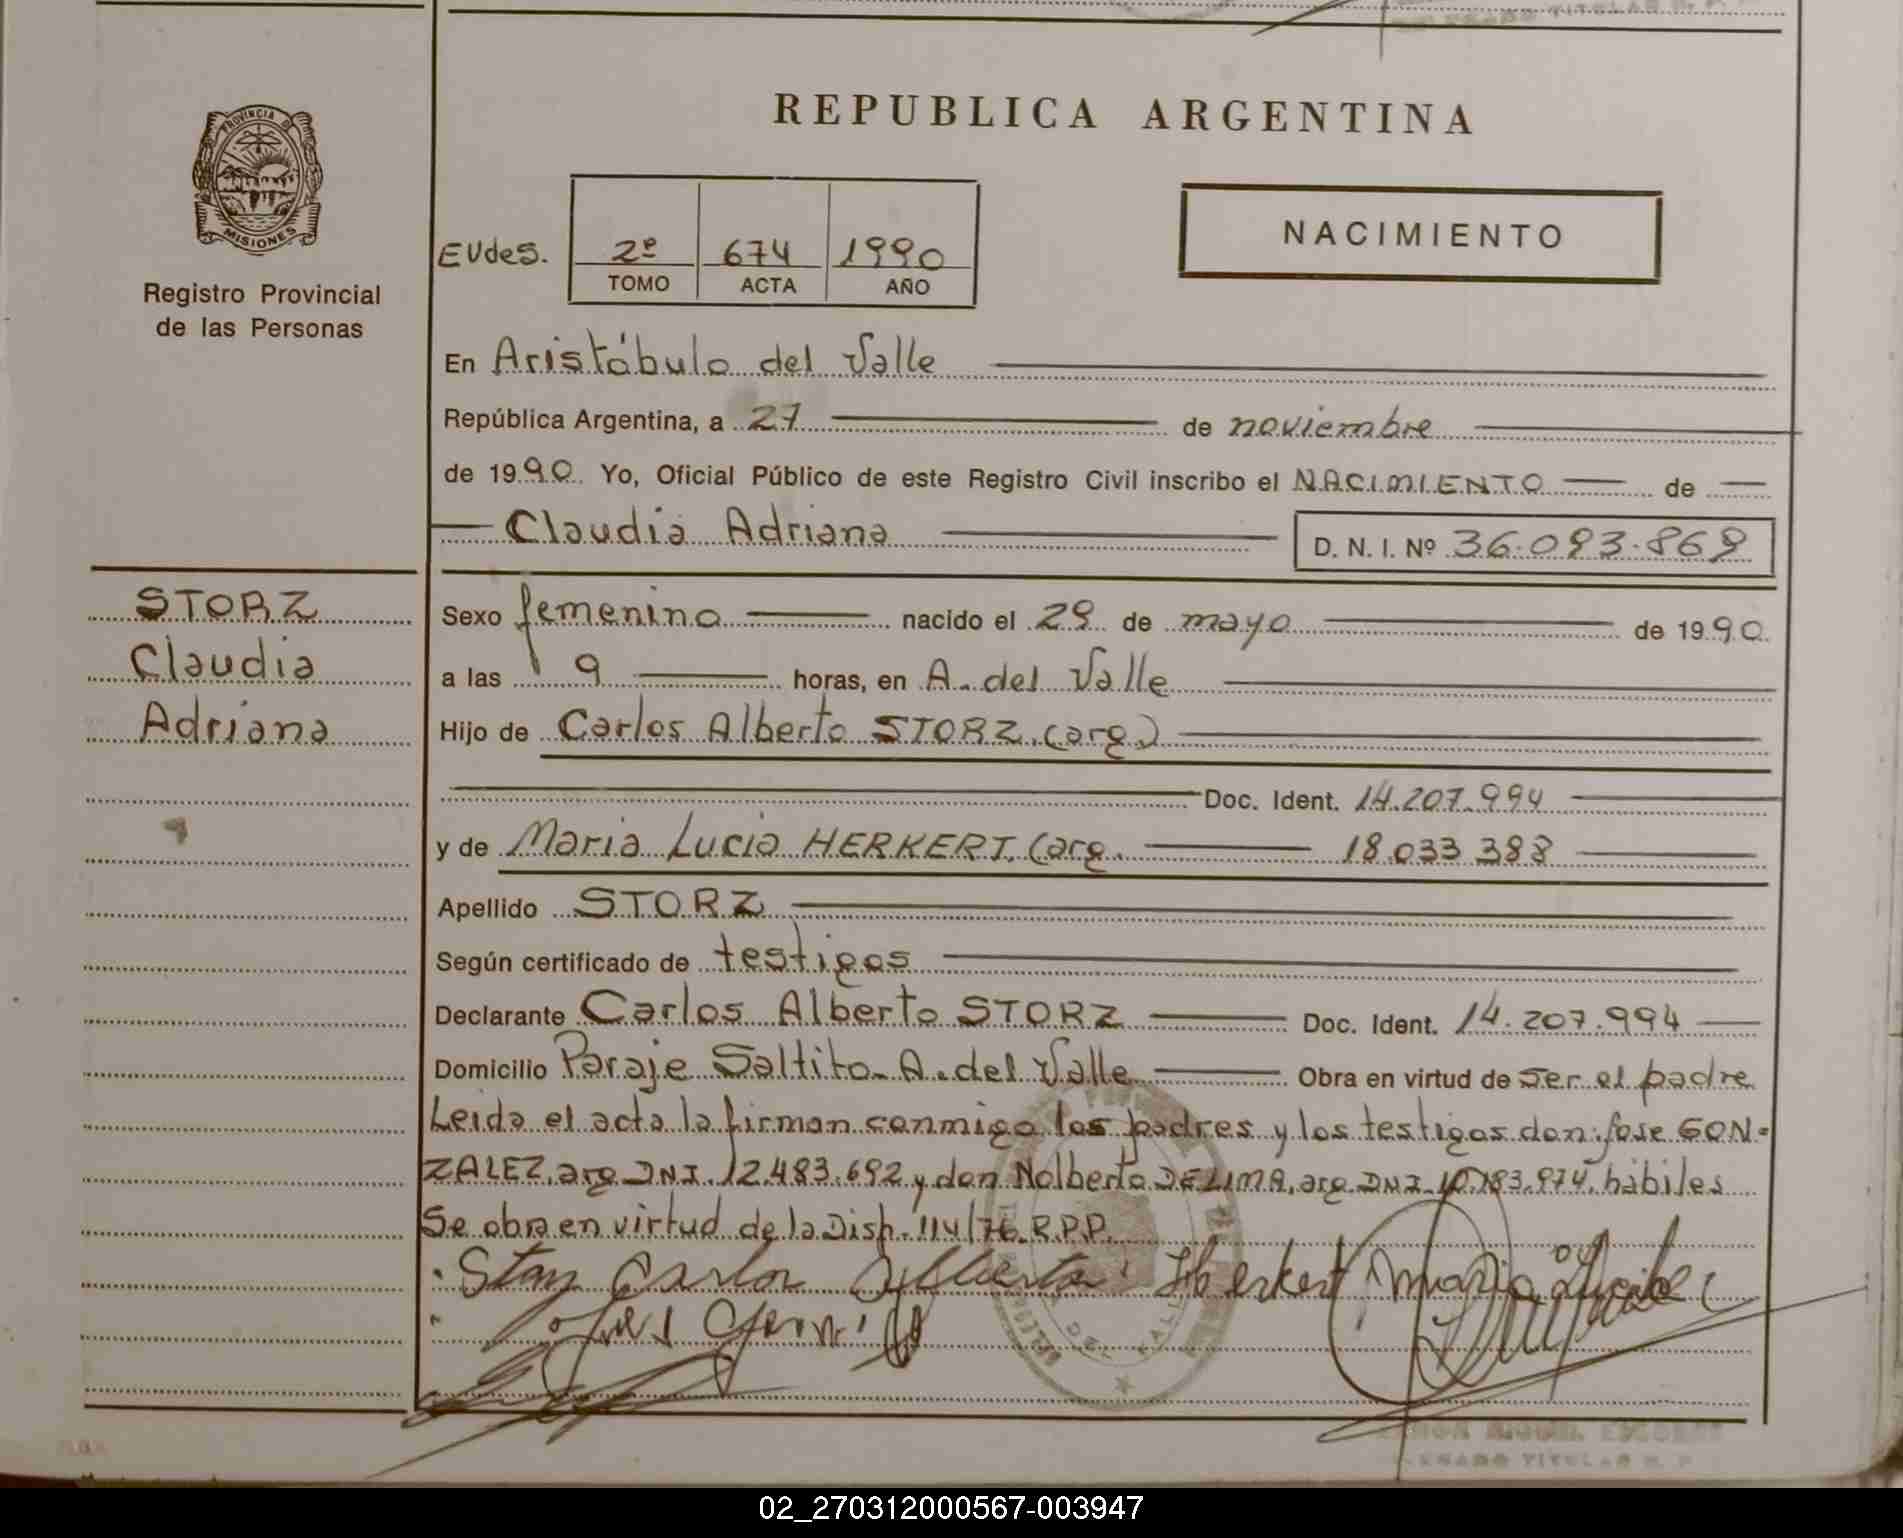 REPUBLICA ARGENTINA
PROVINCIA DE
MISIONES
Registro Provincial
de las Personas
EUdes.
2º 674 1990
TOMO ACTA AÑO
NACIMIENTO
En Aristóbulo del Valle
República Argentina, a 27 de noviembre
de 1990. Yo, Oficial Público de este Registro Civil inscribo el NACIMIENTO de
Claudia Adriana D. N. I. Nº 36.093.869
STORZ
Claudia
Adriana
Sexo femenino nacido el 29 de mayo de 1990.
a las 9 horas, en A. del Valle
Hijo de Carlos Alberto STORZ. (arg.)
Doc. Ident. 14.207.994
y de Maria Lucia HERKERT. (arg. 18.033 388
Apellido STORZ
Según certificado de testigos
Declarante Carlos Alberto STORZ Doc. Ident. 14.207.994
Domicilio Paraje Saltito. A. del Valle Obra en virtud de Ser el padre
Leida el acta la firman conmigo los padres y los testigos don: Jose GON-
ZALEZ, arg. DNI. 12.483.692 y don Nolberto DE LIMA, arg. DNI. 10.783.974, hábiles
Se obra en virtud de la Disp. 114/76. R.P.P.
Storz Carlos Alberto Herkert Maria Lucia
TITULAR R. P.
02_270312000567-003947